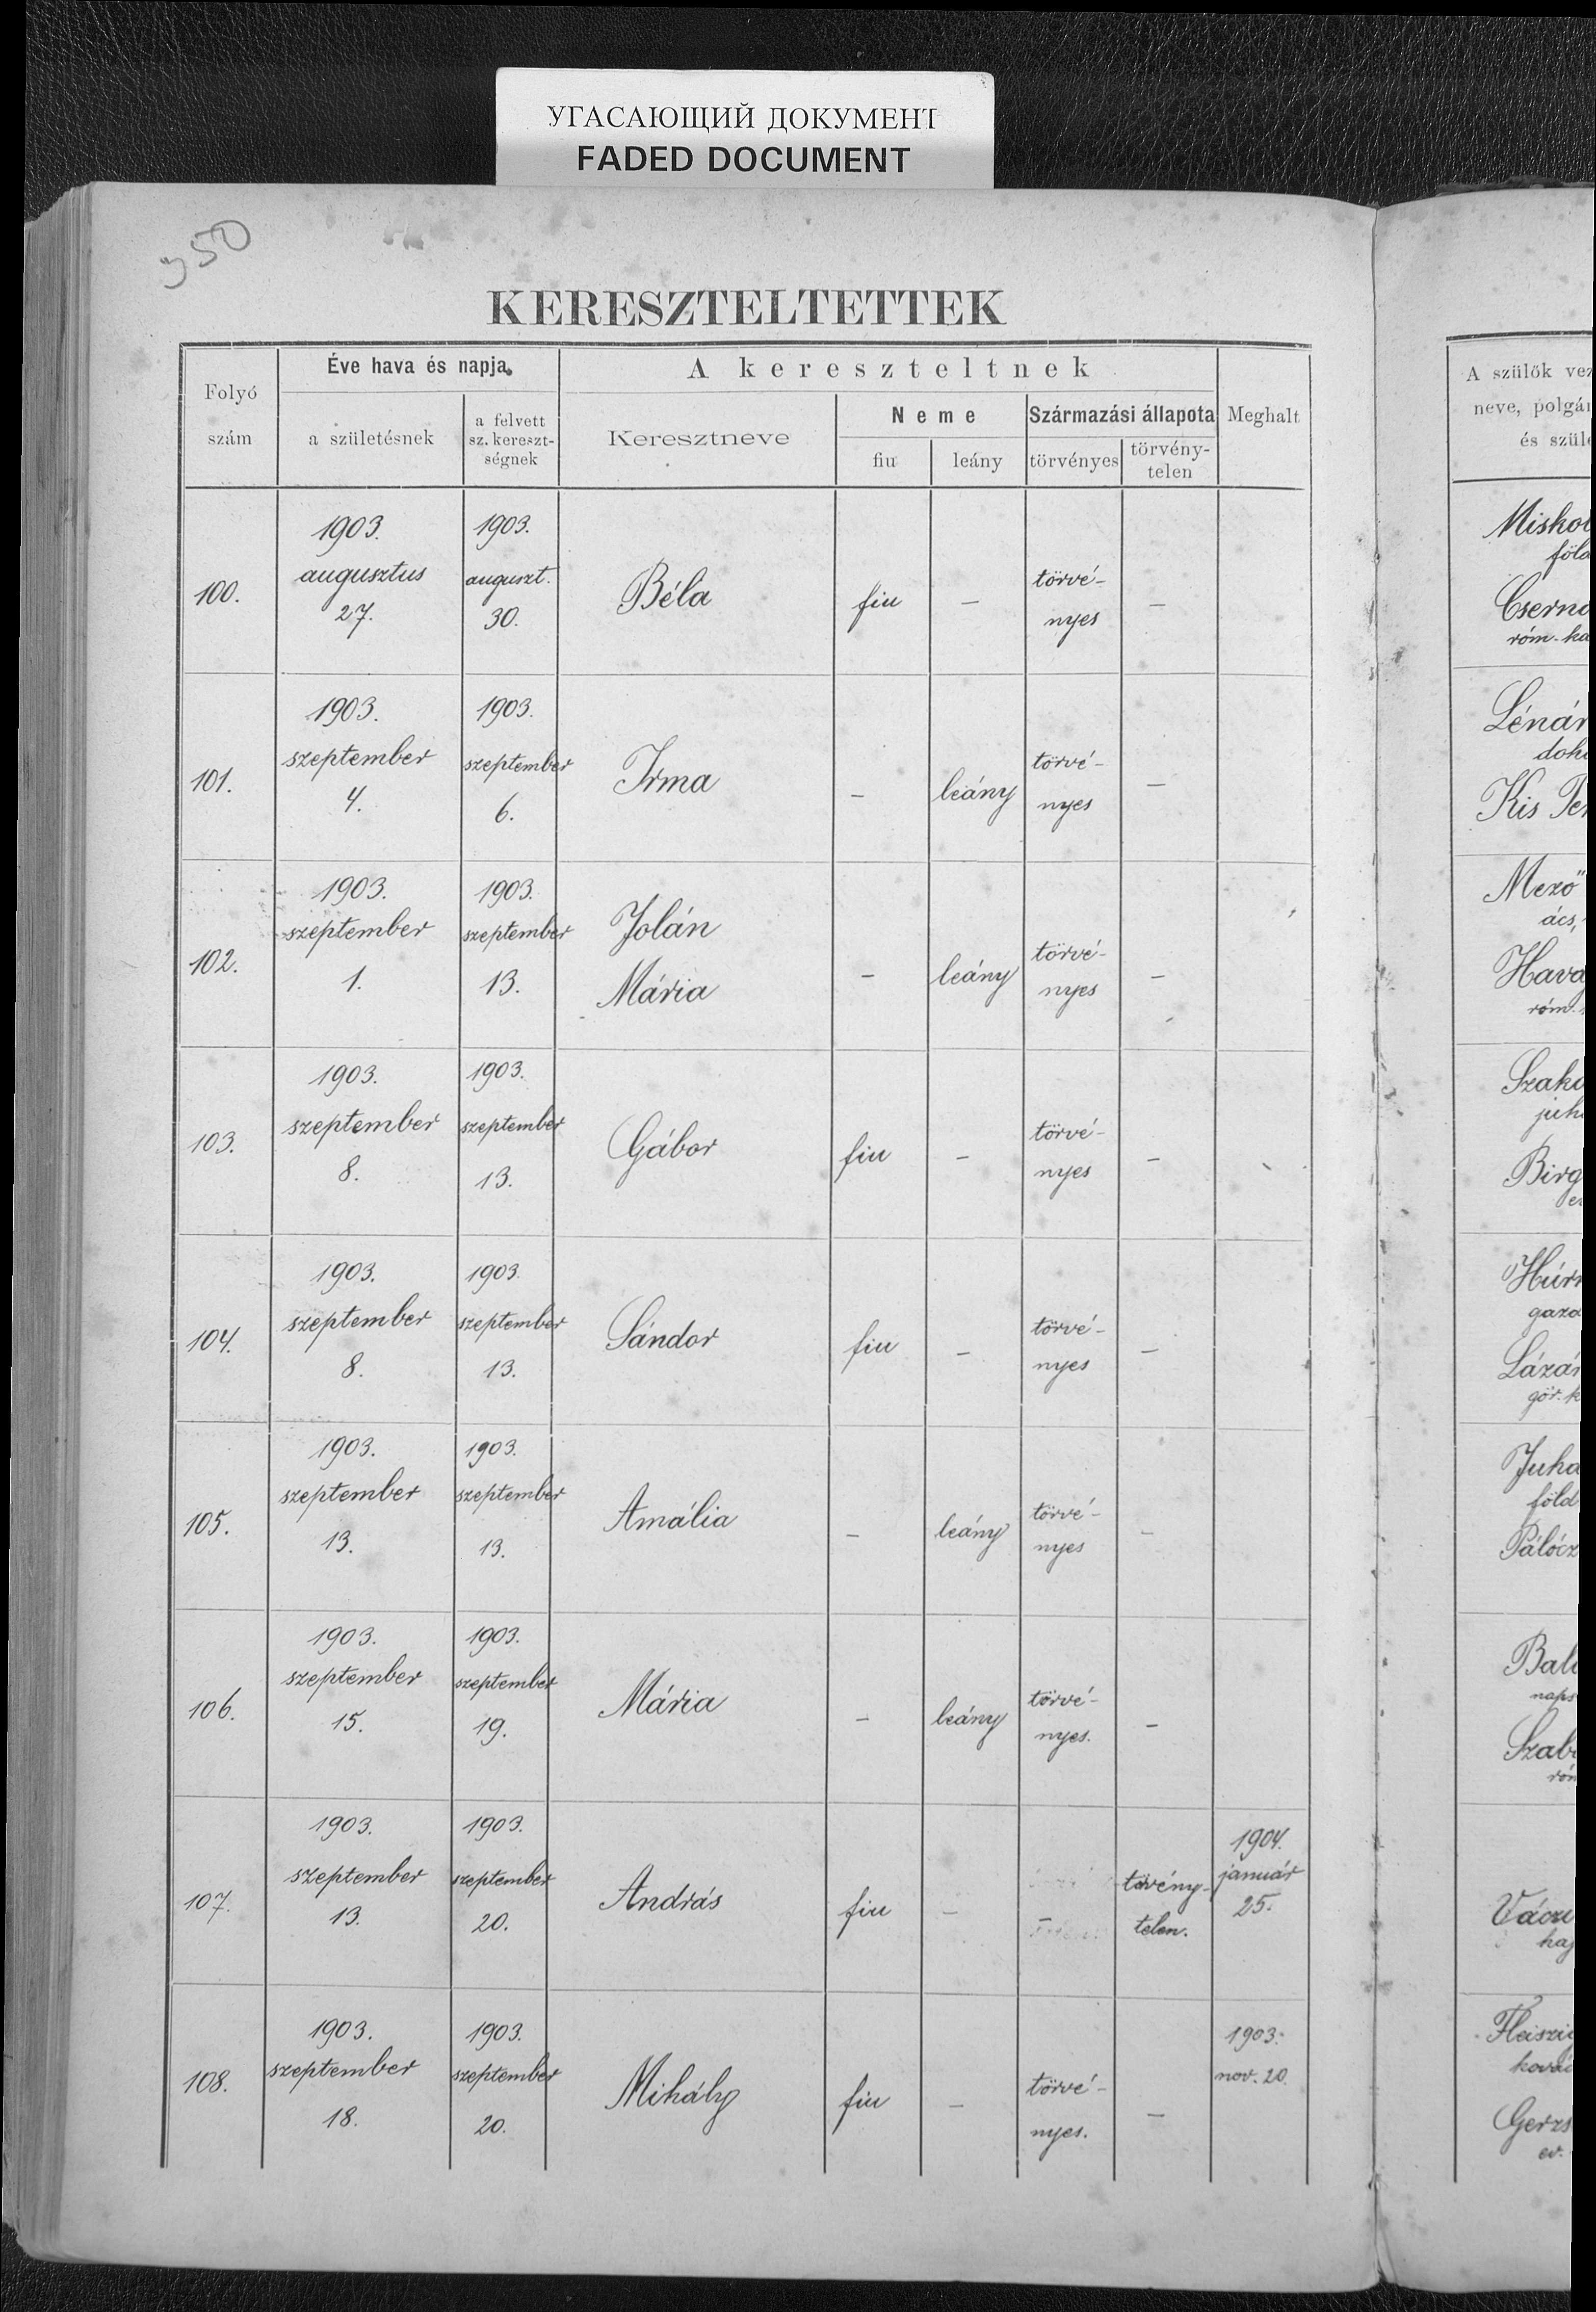 УГАСАЮЩИЙ ДОКУМЕНТ
FADED DOCUMENT
350
KERESZTELTETTEK
Folyó szám
Éve hava és napja
a születésnek
a felvett sz. kereszt-ségnek
A kereszteltnek
Keresztneve
Neme
fiu
leány
Származási állapota
törvényes
törvény-telen
Meghalt
100.
1903. augusztus 27.
1903. auguszt. 30.
Béla
fiu
–
törvé-nyes
–
101.
1903. szeptember 4.
1903. szeptember 6.
Irma
–
leány
törvé-nyes
–
102.
1903. szeptember 1.
1903. szeptember 13.
Jolán
Mária
–
leány
törvé-nyes
–
103.
1903. szeptember 8.
1903. szeptember 13.
Gábor
fiu
–
törvé-nyes
–
104.
1903. szeptember 8.
1903. szeptember 13.
Sándor
fiu
–
törvé-nyes
–
105.
1903. szeptember 13.
1903. szeptember 13.
Amália
–
leány
törvé-nyes
–
106.
1903. szeptember 15.
1903. szeptember 19.
Mária
–
leány
törvé-nyes.
–
107.
1903. szeptember 13.
1903. szeptember 20.
András
fiu
–
–
tövény-telen.
1904. január 25.
108.
1903. szeptember 18.
1903. szeptember 20.
Mihály
fiu
–
törvé-nyes.
–
1903. nov. 20.
A szülők vez
neve, polgár
és szül
Misko
föld
Cserna
róm. ka
Lénár
doh
Kis Te
Mező
ács,
Hava
róm.
Szaka
juh
Birg
Húr
gazd
Lázár
gör. k
Juha
föld
Pálócz
Bal
naps
Szab
róm
Váczi
haj
Fleiszig
ková
Gerzs
ev.